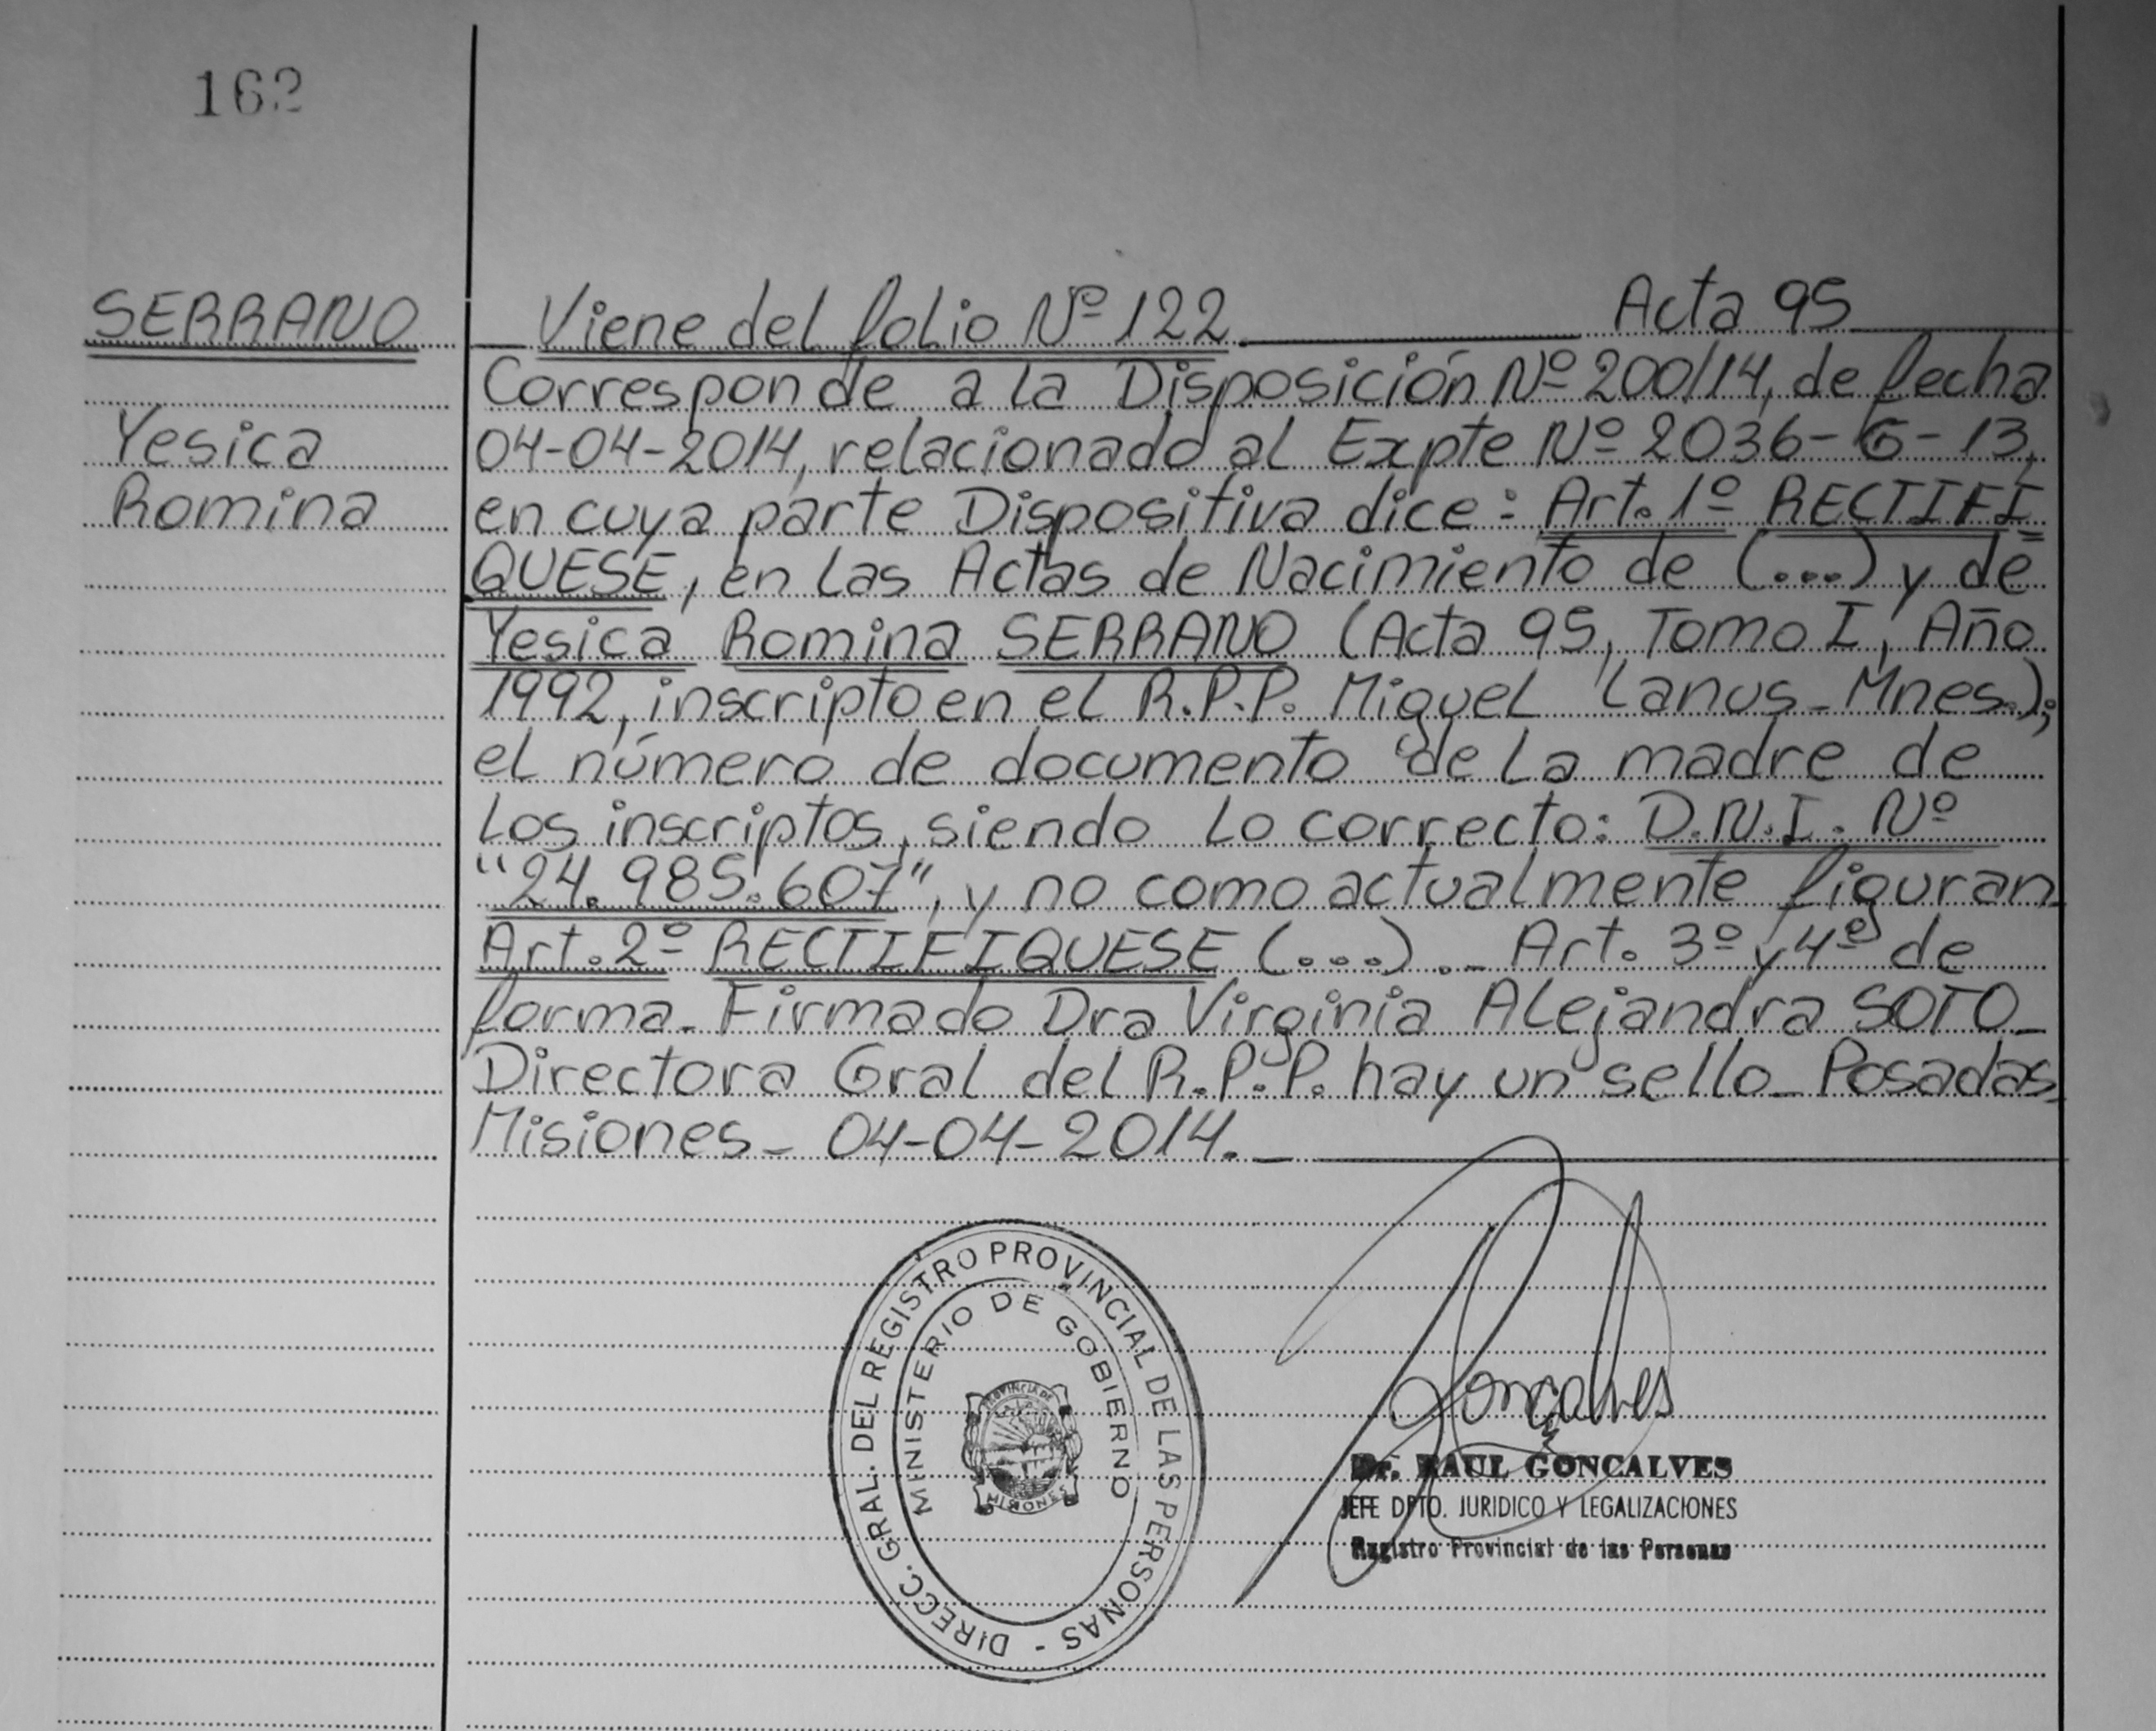 162
SERRANO
Yesica
Romina
Viene del folio Nº 122. Acta 95
Corresponde a la Disposición Nº 200/14, de fecha
04-04-2014, relacionado al Expte Nº 2036-G-13,
en cuya parte Dispositiva dice: Art. 1º RECTIFI
QUESE, en las Actas de Nacimiento de (...) y de
Yesica Romina SERRANO (Acta 95, Tomo I, Año
1992, inscripto en el R.P.P. Miguel Lanus-Mnes.);
el número de documento de la madre de
los inscriptos, siendo lo correcto: D.N.I. Nº
"24.985.607", y no como actualmente figuran
Art. 2º RECTIFIQUESE (...)._ Art. 3º y 4º de
forma_ Firmado Dra Virginia Alejandra SOTO_
Directora Gral del R.P.P. hay un sello_ Posadas,
Misiones_ 04-04-2014._
DIRECC. GRAL. DEL REGISTRO PROVINCIAL DE LAS PERSONAS -
MINISTERIO DE GOBIERNO
PROVINCIA DE
MISIONES
Goncalves
Dr. RAUL GONCALVES
JEFE DPTO. JURIDICO Y LEGALIZACIONES
Registro Provincial de las Personas